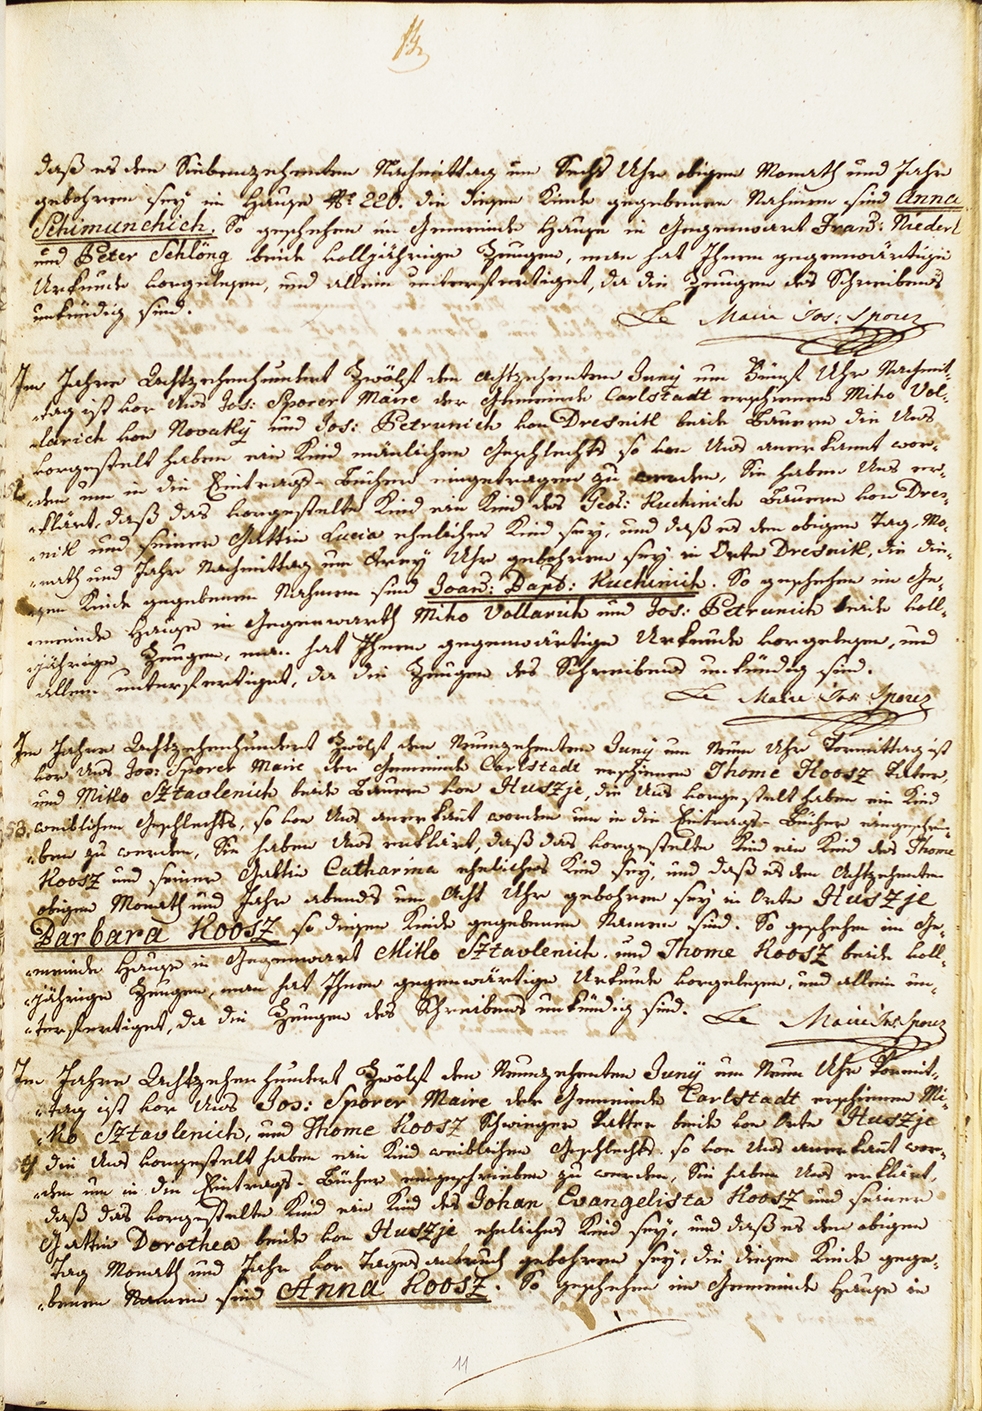 daß es den Siebenzehenten Nachmittag um Sechs Uhr obigen Monath und Jahr
gebohren sey im Hause Nr 220. die diesen Kinde gegebenen Nahmen sind Anna
Schimunchich. So geschehen im Gemeinde Hause in Gegenwart Franz: Niederl
und Peter Schlöng beide volljährige Zeugen, man hat Ihnen gegenwärtige
Urkunde vorgelesen, und allein unterfertiget, da die Zeugen des Schreibens
unkündig sind.
Le Maire Jos: Sporer
Im Jahre Achtzehenhundert Zwölf den Achtzehenten Juny um Fünf Uhr Nachmit-
-tag ist vor Uns Jos: Sporer Maire der Gemeinde Carlstadt erschienen Miko Vol-
-larich von Novaky und Jos: Petrunich von Dresnik beide Bauern die Uns
vorgestelt haben ein Kind mänlichen Geschlechts so von Uns anerkannt wor-
-den um in die Eintrags-Bücher eingetragen zu werden, Sie haben Uns er-
-klärt, daß das vorgestelte Kind ein Kind des Geor: Kuchinich Bauern von Dres-
-nik und seiner Gattin Lucia eheliches Kind sey, und daß es den obigen Tag, Mo-
-nath und Jahr Nachmittag um Drey Uhr gebohren sey in Orte Dresnik, die die-
-sen Kinde gegebenen Nahmen sind Joan: Bapt: Kuchinich. So geschehen im Ge-
-meinde Hause in Gegenwarth Miko Vollarich und Jos: Petrunich beide voll-
-jährige Zeugen, man hat Ihnen gegenwärtige Urkunde vorgelesen, und
allein unterfertiget, da die Zeugen des Schreibens unkündig sind.
Le Maire Jos: Sporer
Im Jahre Achtzehenhundert Zwölf den Neunzehenten Juny um Neun Uhr Vormittag ist
vor Uns Jos: Sporer Maire der Gemeinde Carlstadt erschienen Thome Koosz Vater,
und Mitko Sztavlenich beide Bauern von Huszje, die Uns vorgestelt haben ein Kind
53. weiblichen Geschlechts, so von Uns anerkant worden um in die Eintrags-Bücher eingeschrie-
-ben zu werden, Sie haben Uns erklärt, daß das vorgestelte Kind ein Kind des Thome
Koosz und seiner Gattin Catharina eheliches Kind sey, und daß es den Achtzehenten
obigen Monath und Jahr abends um Acht Uhr gebohren sey in Orte Huszje
Barbara Koosz so diesen Kinde gegebenen Namen sind. So geschehen im Ge-
-meinde Hause in Gegenwart Mitko Sztavlenich, und Thome Koosz beide voll-
-jährige Zeugen, man hat Ihnen gegenwärtige Urkunde vorgelesen, und allein un-
-terfertiget, da die Zeugen des Schreibens unkündig sind. Le Maire Jos: Sporer
Im Jahre Achtzehenhundert Zwölf den Neunzehenten Juny um Neun Uhr Vormit-
-tag ist vor Uns Jos: Sporer Maire der Gemeinde Carlstadt erschienen Mi-
-ko Sztavlenich, und Thome Koosz Schwieger Vatter beide von Orte Huszje
die Uns vorgestelt haben ein Kind weiblichen Geschlechts so von Uns anerkant wor-
-den um in die Eintrags-Bücher eingeschrieben zu werden, Sie haben Uns erklärt,
daß das vorgestelte Kind ein Kind des Johan Evangelista Koosz und seiner
Gattin Dorothea beide von Huszje eheliches Kind sey, und daß es den obigen
Tag Monath und Jahr vor Tages anbruch gebohren sey, die diesen Kinde gege-
-benen Namen sind Anna Koosz. So geschehen im Gemeinde Hause in
11